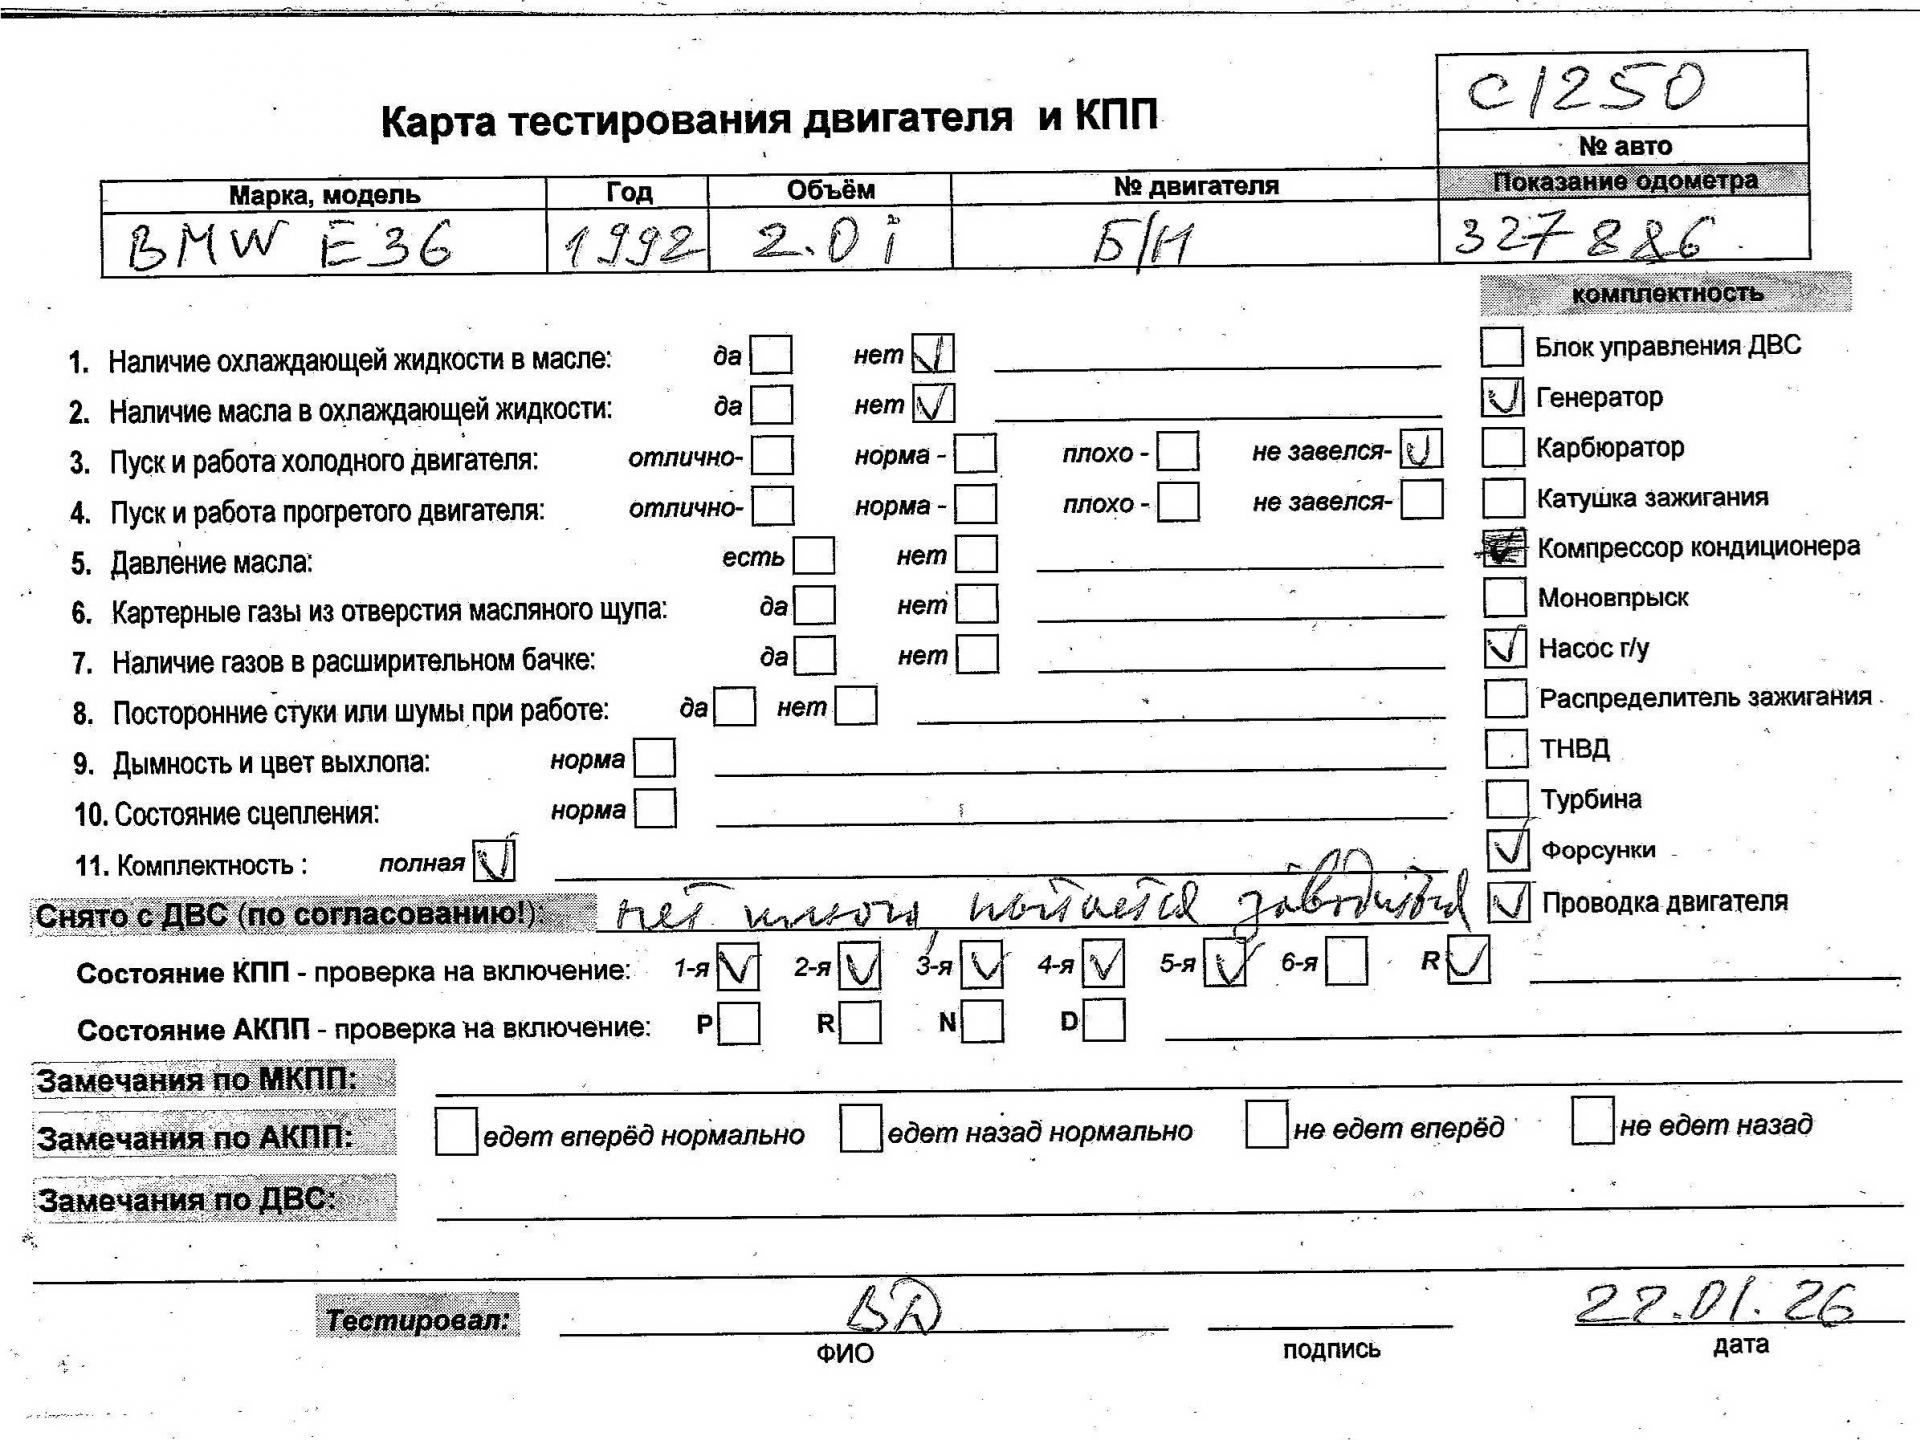 С1250
Карта тестирования двигателя и КПП
№ авто
Марка, модель Год Объём № двигателя Показание одометра
BMW E36 1992 2.0 i Б/Н 327886
комплектность
1. Наличие охлаждающей жидкости в масле: да нет
Блок управления ДВС
2. Наличие масла в охлаждающей жидкости: да нет
Генератор
3. Пуск и работа холодного двигателя: отлично- норма - плохо - не завелся-
Карбюратор
4. Пуск и работа прогретого двигателя: отлично- норма - плохо - не завелся-
Катушка зажигания
5. Давление масла: есть нет
Компрессор кондиционера
6. Картерные газы из отверстия масляного щупа: да нет
Моновпрыск
7. Наличие газов в расширительном бачке: да нет
Насос г/у
8. Посторонние стуки или шумы при работе: да нет
Распределитель зажигания
9. Дымность и цвет выхлопа: норма
ТНВД
10. Состояние сцепления: норма
Турбина
11. Комплектность : полная
Форсунки
Снято с ДВС (по согласованию!): нет пытается заводиться
Проводка двигателя
Состояние КПП - проверка на включение: 1-я 2-я 3-я 4-я 5-я 6-я R
Состояние АКПП - проверка на включение: P R N D
Замечания по МКПП:
Замечания по АКПП: едет вперёд нормально едет назад нормально не едет вперёд не едет назад
Замечания по ДВС:
Тестировал: 22.01.26
ФИО подпись дата